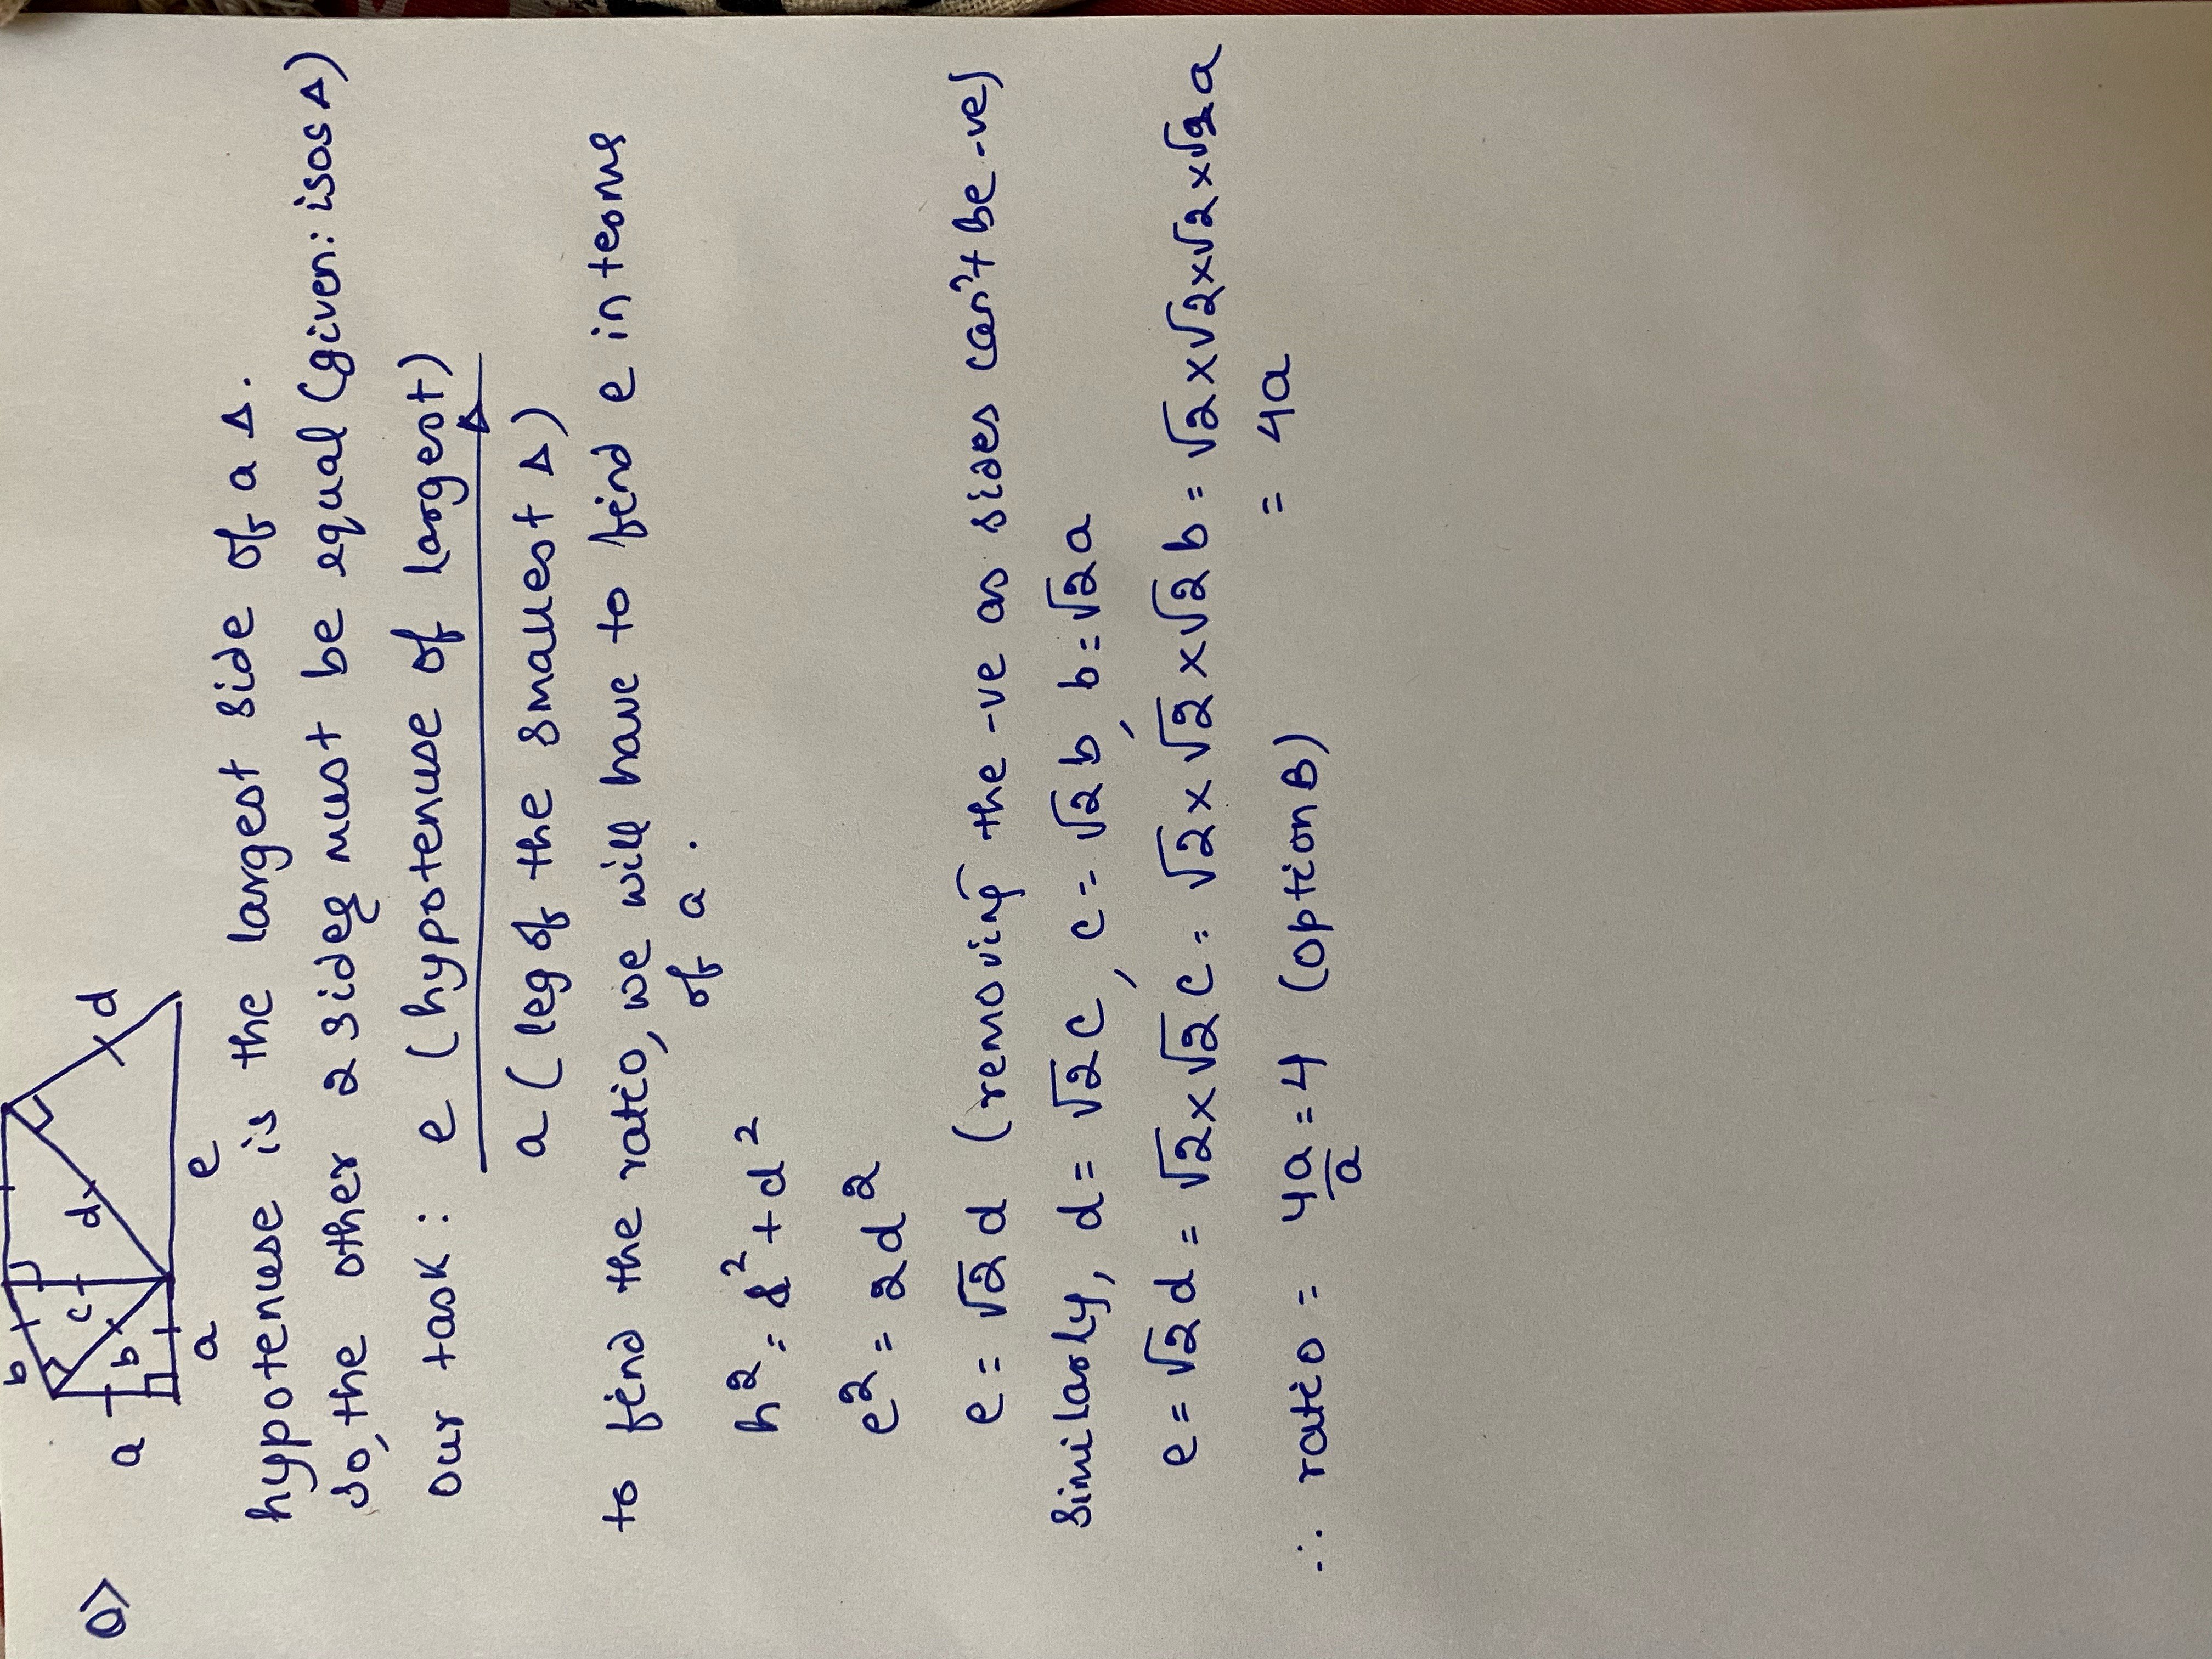 Q>
b
c
d
d
a
b
a
e
hypotenuse is the largest side of a Δ.
So, the other 2 sides must be equal (given: isos Δ)
our task : e (hypotenuse of largest Δ)
a (leg of the smallest Δ)
to find the ratio, we will have to find e in terms
of a.
h² = s² + d²
e² = 2d²
e = √2 d (removing the -ve as sides can't be -ve)
similarly, d = √2 c, c = √2 b, b = √2 a
e = √2 d = √2 x √2 c = √2 x √2 x √2 b = √2 x √2 x √2 x √2 a
= 4a
∴ ratio = 4a/a = 4 (option B)